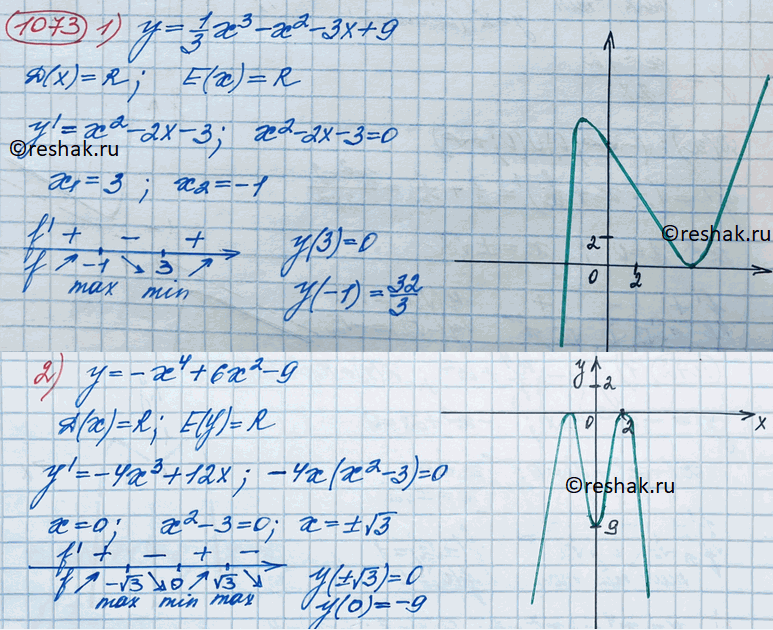 1073 1) y = 1/3 x³ - x² - 3x + 9
D(x) = R; E(x) = R
y' = x² - 2x - 3; x² - 2x - 3 = 0
©reshak.ru
x₁ = 3; x₂ = -1
f' + - +
f ↗ -1 ↘ 3 ↗
max min
y(3) = 0
y(-1) = 32/3
2
0 2
©reshak.ru
2) y = -x⁴ + 6x² - 9
D(x) = R; E(y) = R
y' = -4x³ + 12x; -4x(x² - 3) = 0
x = 0; x² - 3 = 0; x = ±√3
f' + - + -
f ↗ -√3 ↘ 0 ↗ √3 ↘
max min max
y(±√3) = 0
y(0) = -9
y 2
0 2 x
©reshak.ru
9